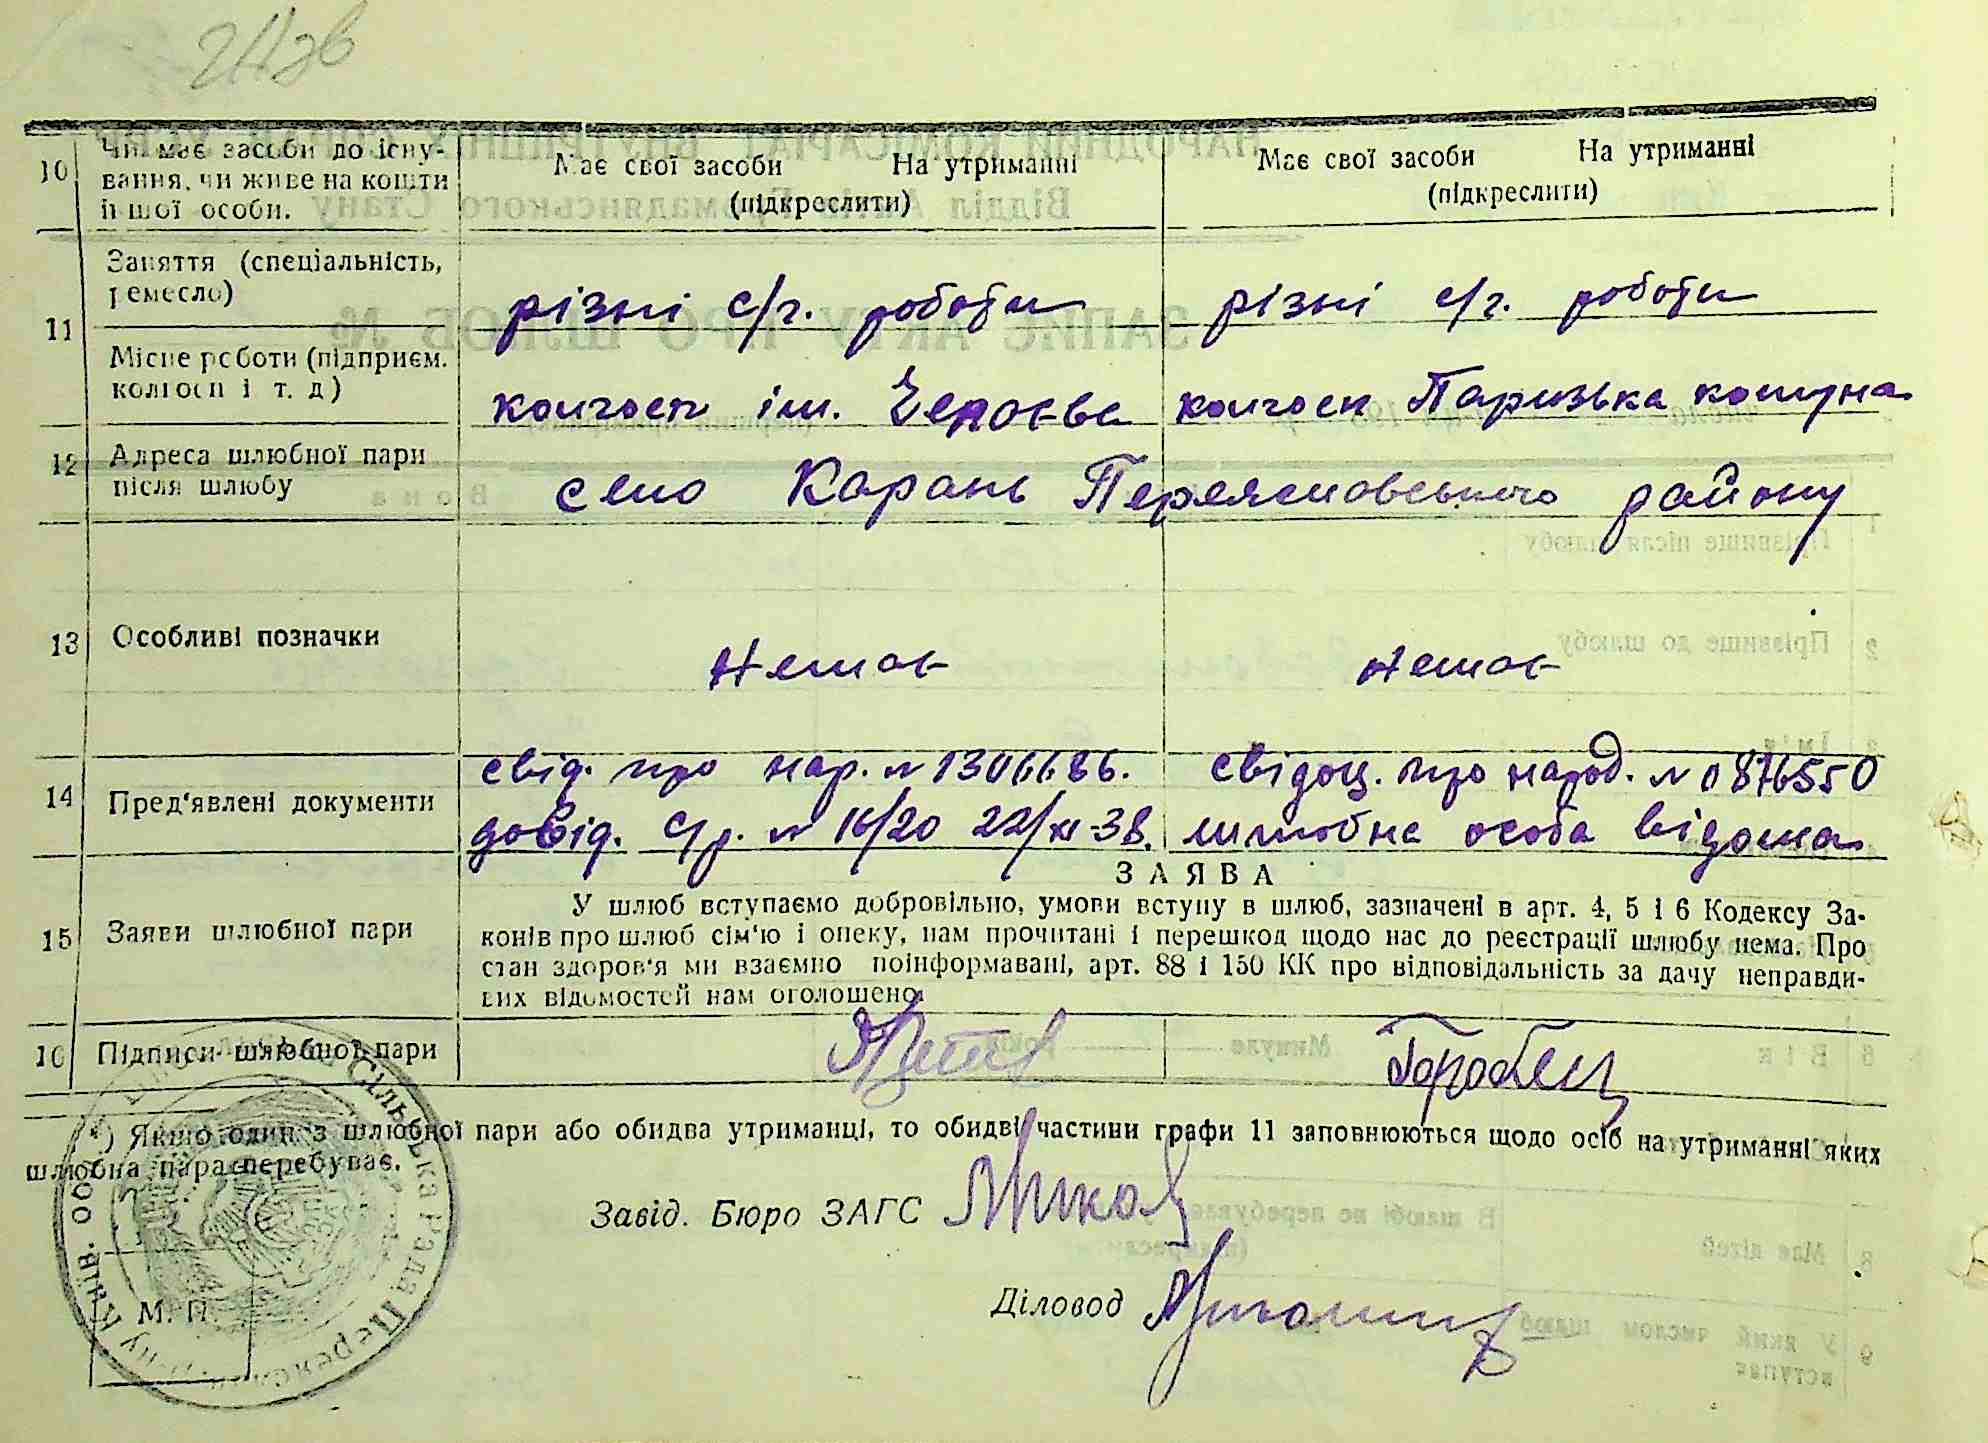 10 Чи має засоби до існу-
вання, чи живе на кошти
іншої особи.
Має свої засоби На утриманні
(підкреслити)
Має свої засоби На утриманні
(підкреслити)
11 Заняття (спеціальність,
ремесло)
різні с/г. роботи
різні с/г. роботи
Місце роботи (підприєм.
колгосп і т. д)
колгосп ім.
колгосп Паризька комуна
12 Адреса шлюбної пари
після шлюбу
село Карань Переяславського району
13 Особливі позначки
немає
немає
14 Пред'явлені документи
свід. про нар. №
довід. с/р. № 16/20 22/XI-38.
свідоц. про народ. № 0876550
шлюбна особа відома
15 Заяви шлюбної пари
ЗАЯВА
У шлюб вступаємо добровільно, умови вступу в шлюб, зазначені в арт. 4, 5 і 6 Кодексу За-
конів про шлюб сім'ю і опеку, нам прочитані і перешкод щодо нас до реєстрації шлюбу нема. Про
стан здоров'я ми взаємно поінформавані, арт. 88 і 150 КК про відповідальність за дачу неправди-
вих відомостей нам оголошено.
16 Підписи шлюбної пари
Горобец
*) Якщо один з шлюбної пари або обидва утриманці, то обидві частини графи 11 заповнюються щодо осіб на утриманні яких
шлюбна пара перебуває.
Завід. Бюро ЗАГС
Діловод
М. П.
Сільська Рада